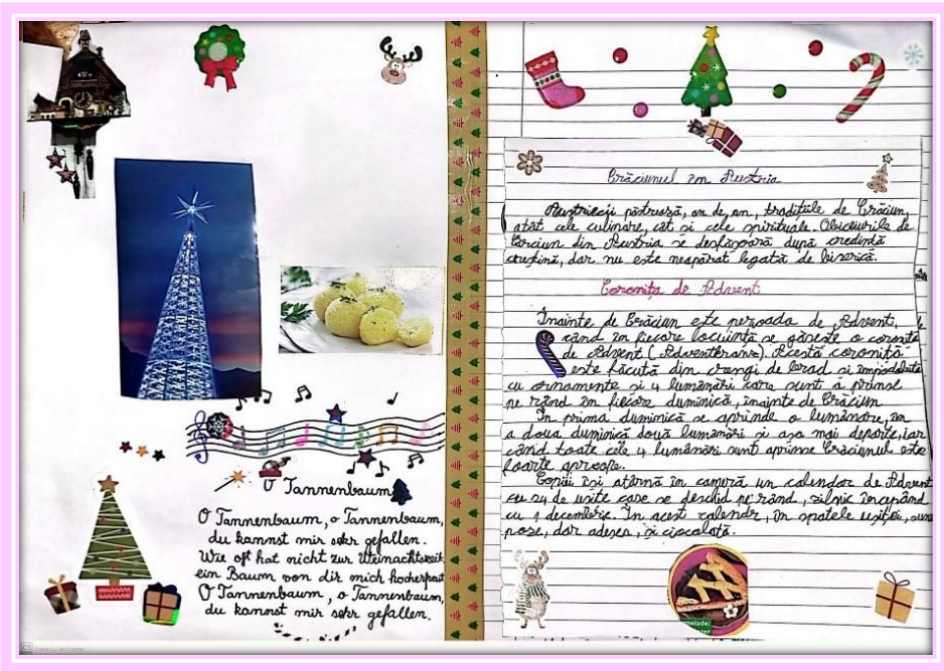 O Tannenbaum
O Tannenbaum, o Tannenbaum,
du kannst mir sehr gefallen.
Wie oft hat nicht zur Weinachtszeit
ein Baum von dir mich hocherfreut
O Tannenbaum, o Tannenbaum,
du kannst mir sehr gefallen.
Crăciunul în Austria
Austriecii păstrează, an de an, tradițiile de Crăciun,
atât cele culinare, cât și cele spirituale. Obiceiurile de
Crăciun din Austria se desfășoară după credința
creștină, dar nu este neapărat legată de biserică.
Coronița de Advent
Înainte de Crăciun este perioada de Advent,
când în fiecare locuință se găsește o coroniță
de Advent (Adventkranz). Acestă coroniță
este făcută din crengi de brad și împodobită
cu ornamente și 4 lumânări care sunt aprinse
pe rând în fiecare duminică, înainte de Crăciun
În prima duminică se aprinde o lumânare, în
a doua duminică două lumânări și așa mai departe, iar
când toate cele 4 lumânări sunt aprinse Crăciunul este
foarte aproape.
Copiii își atârnă în cameră un calendar de Advent
cu 24 de ușițe care se deschid pe rând, zilnic începând
cu 1 decembrie. În acest calendar, în spatele ușiței, sunt
poze, dar adesea, și ciocolată.